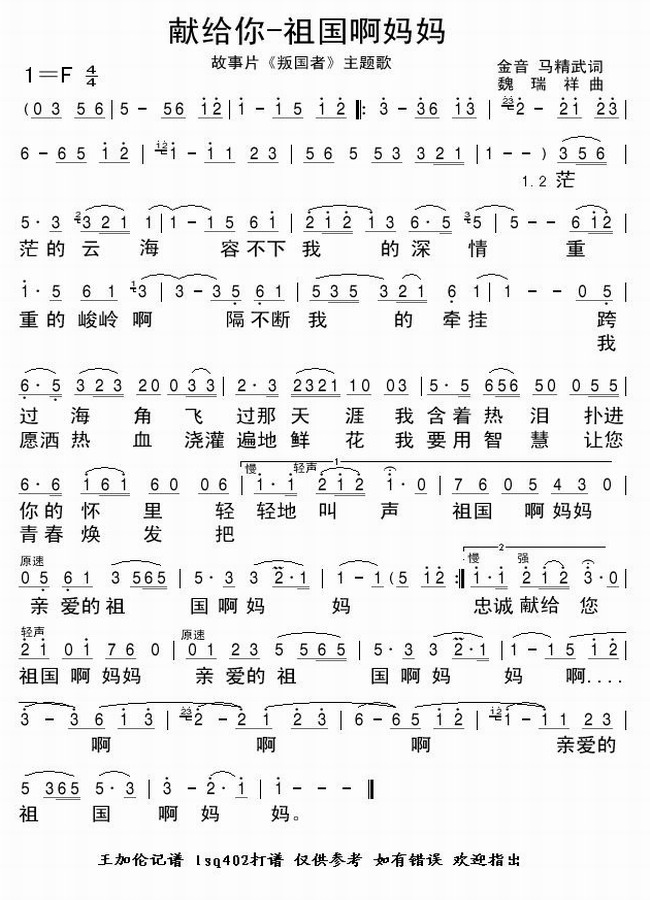 献给你-祖国啊妈妈
故事片《叛国者》主题歌
1=F 4/4
金音 马精武词
魏 瑞 祥 曲
(0 3 5 6 | 5 - 5 6 1 2 | 1 - 1 5 1 2 |: 3 - 3 6 1 3 | 2 - 2 1 2 3 |
6 - 6 5 1 2 | 1 - 1 1 2 3 | 5 6 5 5 3 3 2 1 | 1 - - ) 3 5 6 |
1.2 茫
5· 3 3 2 1 1 | 1 - 1 5 6 1 | 2 1 2 1 3 6· 5 5 | 5 - - 6 1 2 |
茫的云海 容不下我 的深情 重
1· 5 6 1 3 | 3 - 3 5 6 1 | 5 3 5 3 2 1 6 1 | 1 - - 0 5 |
重的峻岭啊 隔不断我 的牵挂 跨
我
6· 5 3 2 3 2 0 0 3 3 | 2· 3 2 3 2 1 1 0 0 3 | 5· 5 6 5 6 5 0 0 5 5 |
过海角飞过那天涯我含着热泪扑进
愿洒热血浇灌遍地鲜花我要用智慧让您
6· 6 1 6 1 6 0 0 6 | 慢 1· 1 轻声 2 1 2 1· 0 | 7 6 0 5 4 3 0 |
你的怀里轻轻地叫声祖国啊妈妈
青春焕发把
原速 慢 强
0 5 6 1 3 5 6 5 | 5· 3 3 2· 1 | 1 - 1 (5 1 2 :| 1· 1 2 1 2 3· 0 |
亲爱的祖 国啊妈 妈 忠诚献给您
轻声 原速
2 1 0 1 7 6 0 | 0 1 2 3 5 5 6 5 | 5· 3 3 2· 1 | 1 - 1 5 1 2 |
祖国啊妈妈 亲爱的祖 国啊妈 妈啊....
3 - 3 6 1 3 | 2 - 2 1 2 3 | 6 - 6 5 1 2 | 1 - 1 1 2 3 |
啊 啊 啊 亲爱的
5 3 6 5 5· 3 | 3 - 2· 1 | 1 - - - ||
祖国啊妈妈。
王加伦记谱 lsq402打谱 仅供参考 如有错误 欢迎指出